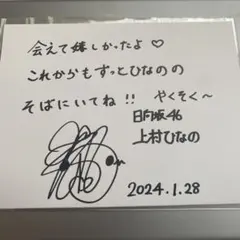 会えて嬉しかったよ♡
これからもずっとひなのの
そばにいてね!! やくそく〜
日向坂46
上村ひなの
2024.1.28